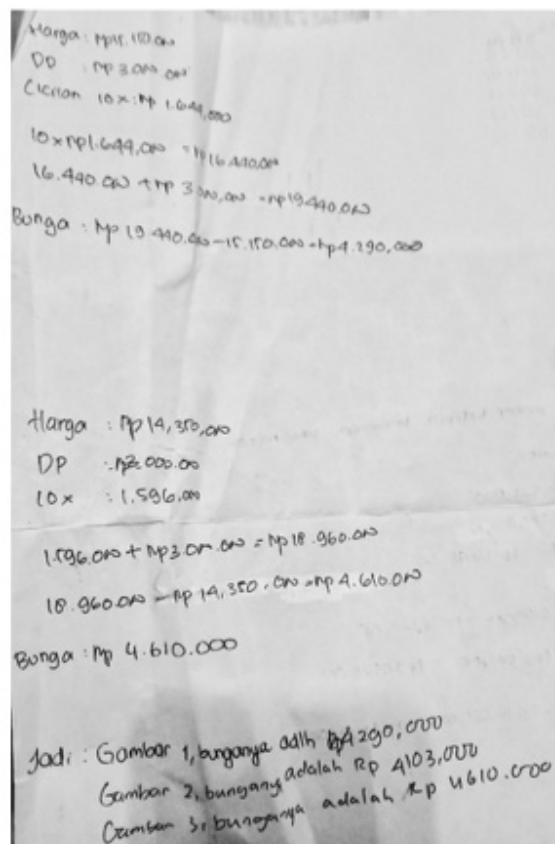 Harga : Rp 15.150.000
DP : Rp 3.000.000
Cicilan 10x : Rp 1.644,000
10 x Rp1.644,000 = Rp16.440,000
16.440.000 + Rp 3.000,000 = Rp19.440.000
Bunga : Rp 19.440.000 - 15.150.000 = Rp4.290,000
Harga : Rp 14,350,000
DP :
10 x : 1.596.000
1.596.000 + Rp3.000.000 = Rp18.960.000
18.960.000 - Rp 14,350.000 = Rp 4.610.000
Bunga : Rp 4.610.000
Jadi : Gambar 1, bunganya adlh Rp4290,000
Gambar 2, bunganya adalah Rp 4103,000
Gambar 3, bunganya adalah Rp 4610.000